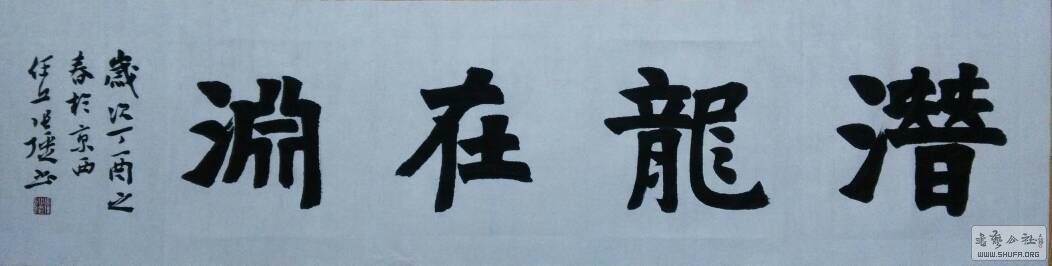 潛龍在淵
歲次丁酉之
春於京西
書藝公社
WWW.SHUFA.ORG